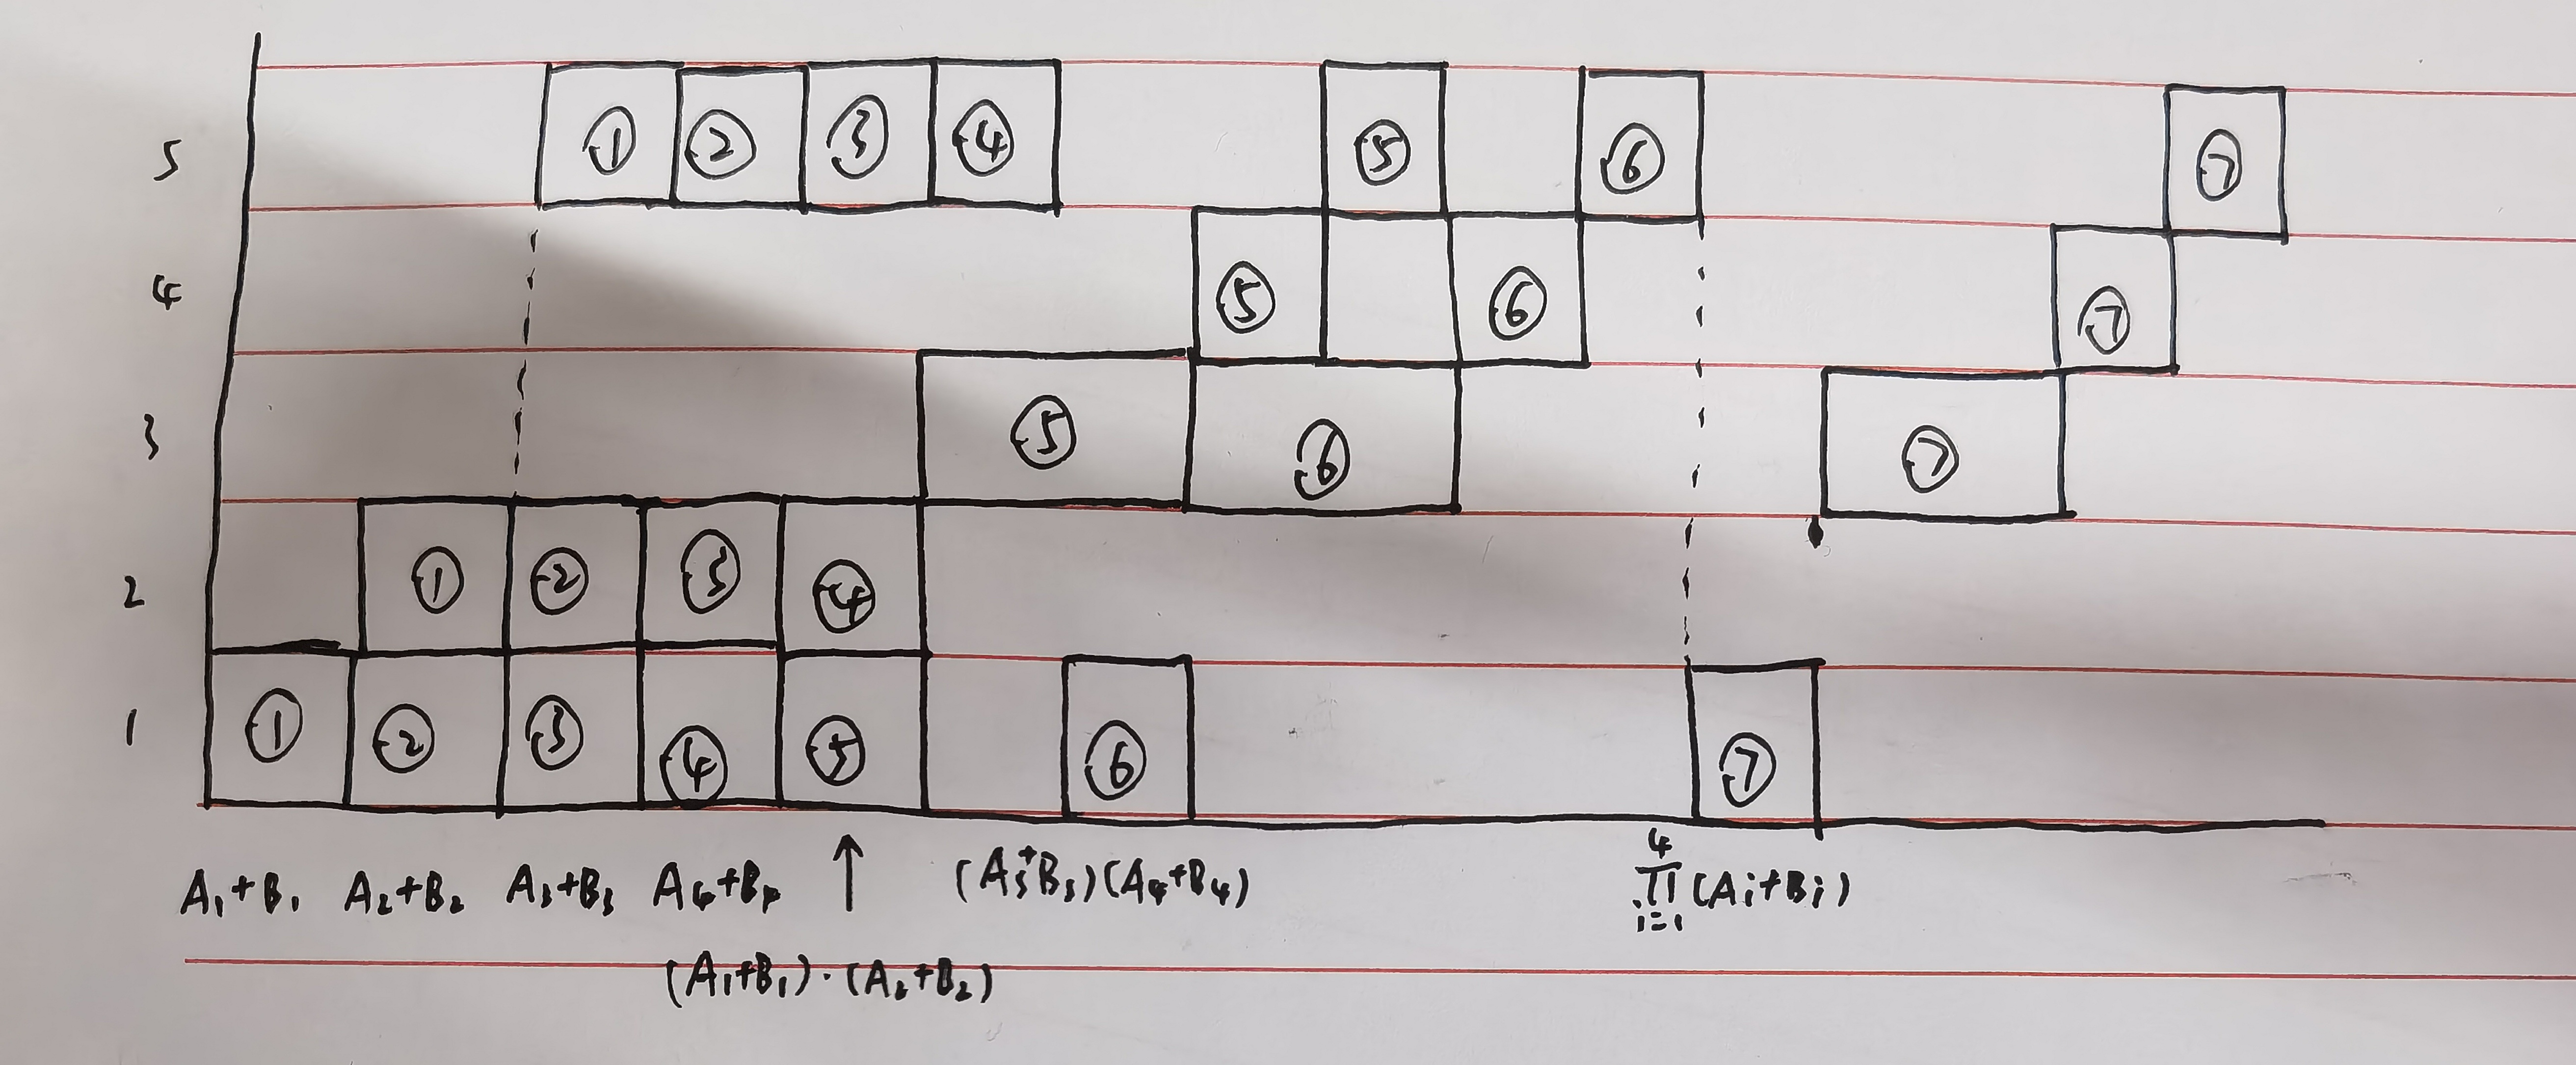 5 ① ② ③ ④ ⑤ ⑥ ⑦
4 ⑤ ⑥ ⑦
3 ⑤ ⑥ ⑦
2 ① ② ③ ④
1 ① ② ③ ④ ⑤ ⑥ ⑦
A₁+B₁ A₂+B₂ A₃+B₃ A₄+B₄ ↑ (A₃+B₃)(A₄+B₄) ∏ᵢ₌₁⁴(Ai+Bi)
(A₁+B₁)·(A₂+B₂)